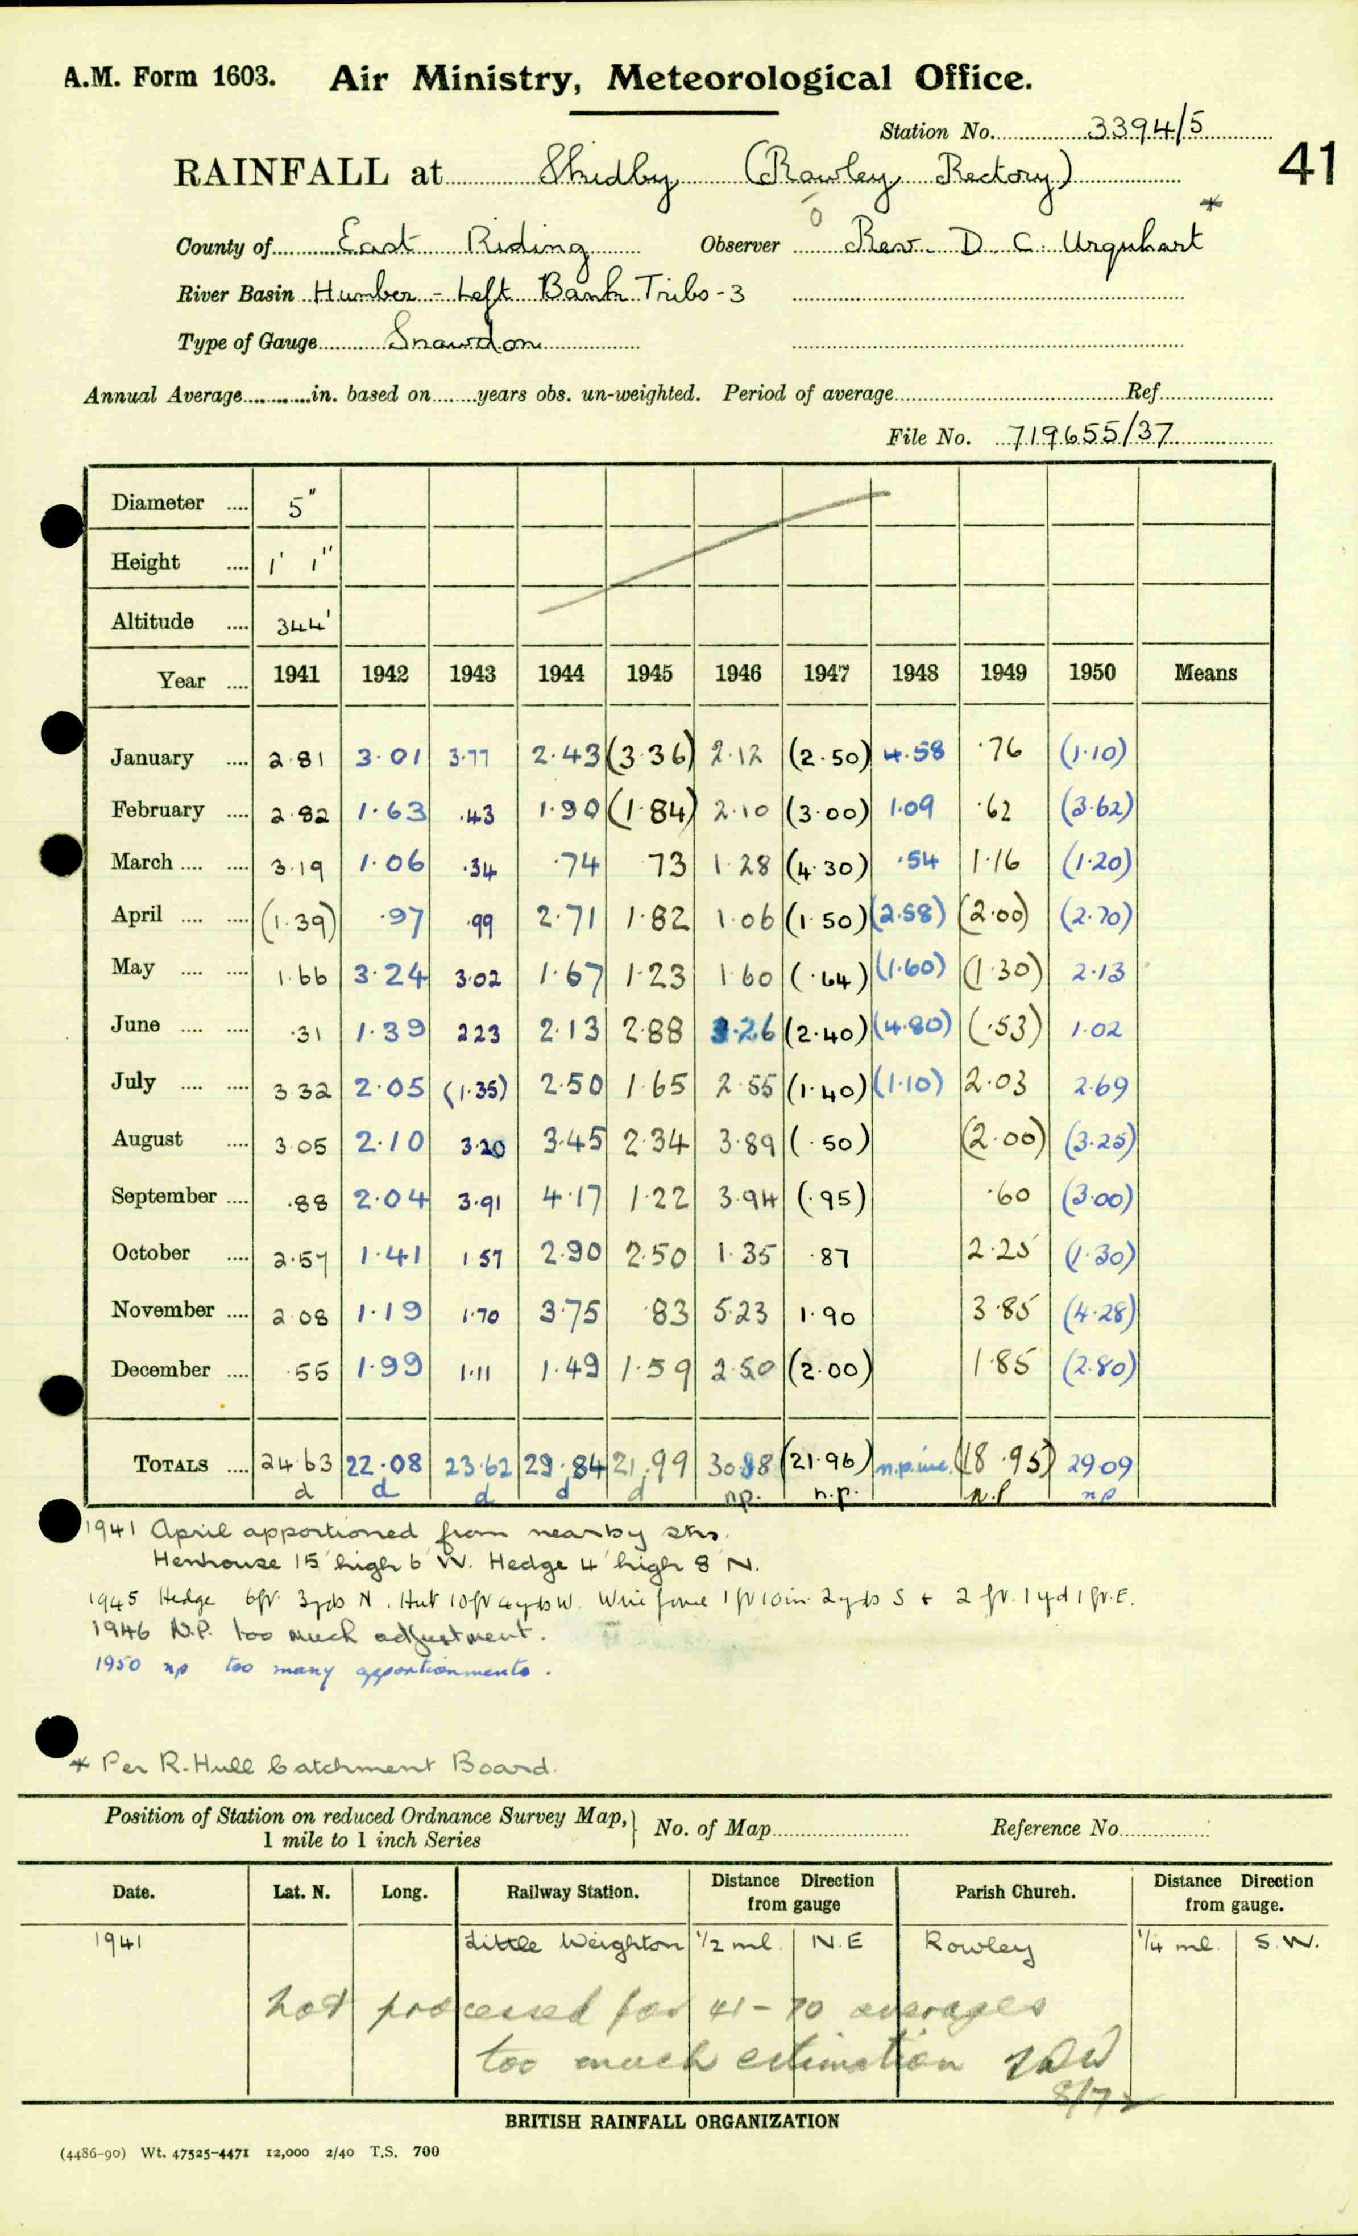 A.M. Form 1603. Air Ministry, Meteorological Office.
Station No. 3394/5
41
RAINFALL at Skidby (Rowley Rectory)
o
*
County of East Riding Observer Rev. D C. Urquhart
River Basin Humber - Left Bank Tribs - 3
Type of Gauge Snowdon
Annual Average in. based on years obs. un-weighted. Period of average Ref.
File No. 719655/37
Diameter 5"
Height 1' 1"
Altitude 344'
Year 1941 1942 1943 1944 1945 1946 1947 1948 1949 1950 Means
January 2.81 3.01 3.77 2.43 (3.36) 2.12 (2.50) 4.58 .76 (1.10)
February 2.82 1.63 .43 1.90 (1.84) 2.10 (3.00) 1.09 .62 (3.62)
March 3.19 1.06 .34 .74 .73 1.28 (4.30) .54 1.16 (1.20)
April (1.39) .97 .99 2.71 1.82 1.06 (1.50) (2.58) (2.00) (2.70)
May 1.66 3.24 3.02 1.67 1.23 1.60 (.64) (1.60) (1.30) 2.13
June .31 1.39 2.23 2.13 2.88 3.26 (2.40) (4.80) (.53) 1.02
July 3.32 2.05 (1.35) 2.50 1.65 2.55 (1.40) (1.10) 2.03 2.69
August 3.05 2.10 3.20 3.45 2.34 3.89 (.50) (2.00) (3.25)
September .88 2.04 3.91 4.17 1.22 3.94 (.95) .60 (3.00)
October 2.57 1.41 1.57 2.90 2.50 1.35 .87 2.25 (1.30)
November 2.08 1.19 1.70 3.75 .83 5.23 1.90 3.85 (4.28)
December .55 1.99 1.11 1.49 1.59 2.50 (2.00) 1.85 (2.80)
TOTALS 24.63 22.08 23.62 29.84 21.99 30.88 (21.96) n.p. inc. (18.95) 29.09
d d d d d n.p. n.p. n.p np
1941 April apportioned from nearby stns.
Henhouse 15' high 6' W. Hedge 4' high 8' N.
1945 Hedge 6ft 3yds N. Hut 10ft 4yds W. Wire fence 1ft 10in 2yds S + 2 ft. 1yd 1ft. E.
1946 N.P. too much adjustment.
1950 np too many apportionments.
* Per R. Hull Catchment Board.
Position of Station on reduced Ordnance Survey Map, 1 mile to 1 inch Series } No. of Map Reference No.
Date. Lat. N. Long. Railway Station. Distance Direction from gauge Parish Church. Distance Direction from gauge.
1941 Little Weighton 1/2 ml. N.E Rowley 1/4 ml. S.W.
not processed for 41-70 averages
too much estimation
8/72
BRITISH RAINFALL ORGANIZATION
(4486-90) Wt. 47525-4471 12,000 2/40 T.S. 700